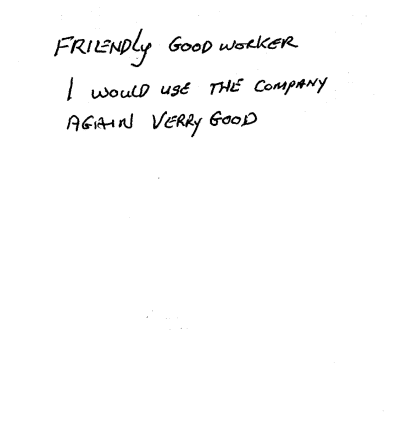 FRIENDly GOOD WORKER
I WOULD USE THE COMPANY
AGAIN VERRY GOOD